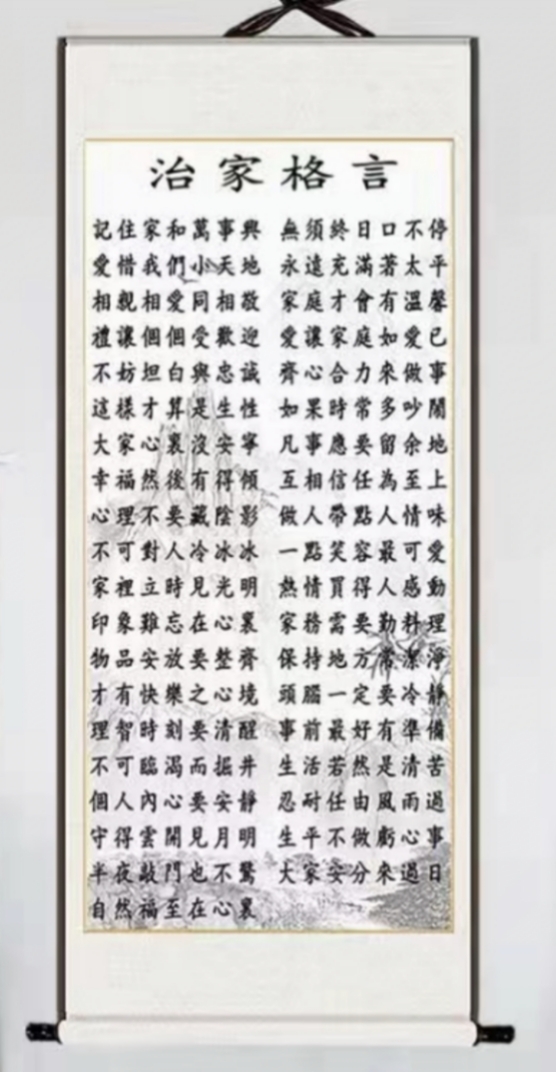 治家格言
記住家和萬事興
愛惜我們小天地
相親相愛同相敬
禮讓個個受歡迎
不妨坦白與忠誠
這樣才算是生性
大家心裏沒安寧
幸福然後有得傾
心理不要藏陰影
不可對人冷冰冰
家裡立時見光明
印象難忘在心裏
物品安放要整齊
才有快樂之心境
理智時刻要清醒
不可臨渴而掘井
個人內心要安靜
守得雲開見月明
半夜敲門也不驚
自然福至在心裏
無須終日口不停
永遠充滿著太平
家庭才會有溫馨
愛讓家庭如愛己
齊心合力來做事
如果時常多吵鬧
凡事應要留余地
互相信任為至上
做人帶點人情味
一點笑容最可愛
熱情買得人感動
家務需要勤料理
保持地方常潔淨
頭腦一定要冷靜
事前最好有準備
生活若然是清苦
忍耐任由風雨過
生平不做虧心事
大家安分來過日